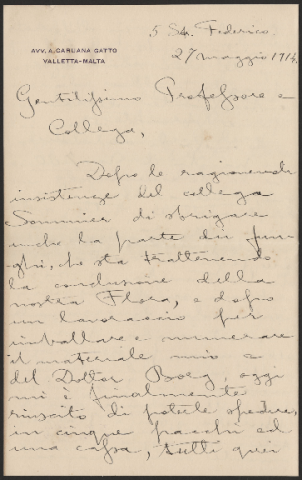 AVV. A. CARUANA GATTO
VALLETTA-MALTA
5 Str. Federico.
27 maggio 1914.
Gentilissimo Professore e
Collega,
Dopo le ragionevoli
insistenze del collega
Sommier di sbrigare
anche la parte dei fun-
ghi, che sta trattenendo
la conclusione della
nostra Flora, e dopo
un lavoraccio per
imballare e numerare
il materiale mio e
del Dottor Borg, oggi
mi è finalmente
riuscito di poterle spedire,
in cinque pacchi ed
una cassa, tutti quei